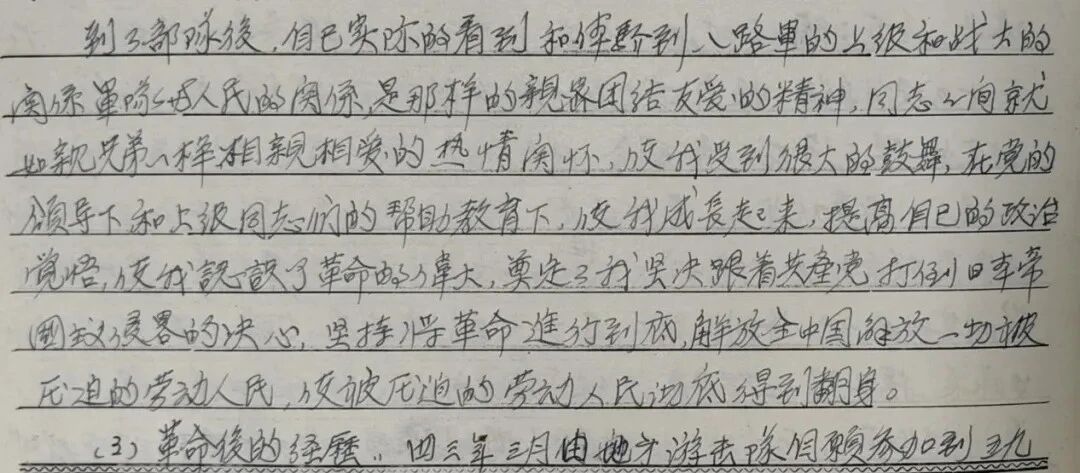 到了部隊後，自己实际的看到和体驗到八路軍的上级和战士的
関係軍隊与人民的関係，是那样的親密团结友爱的精神，同志之间就
如親兄弟一样相親相爱的热情関怀，使我受到很大的鼓舞，在党的
領导下和上级同志们的帮助教育下，使我成長起来，提高自己的政治
觉悟，使我認識了革命的偉大，奠定了我坚决跟着共產党打倒日本帝
國主义侵畧的决心，坚持将革命進行到底，解放全中国解放一切被
压迫的劳动人民，使被压迫的劳动人民彻底得到翻身。
(3)革命後的经歷：四三年三月由地方游击隊自願参加到五九